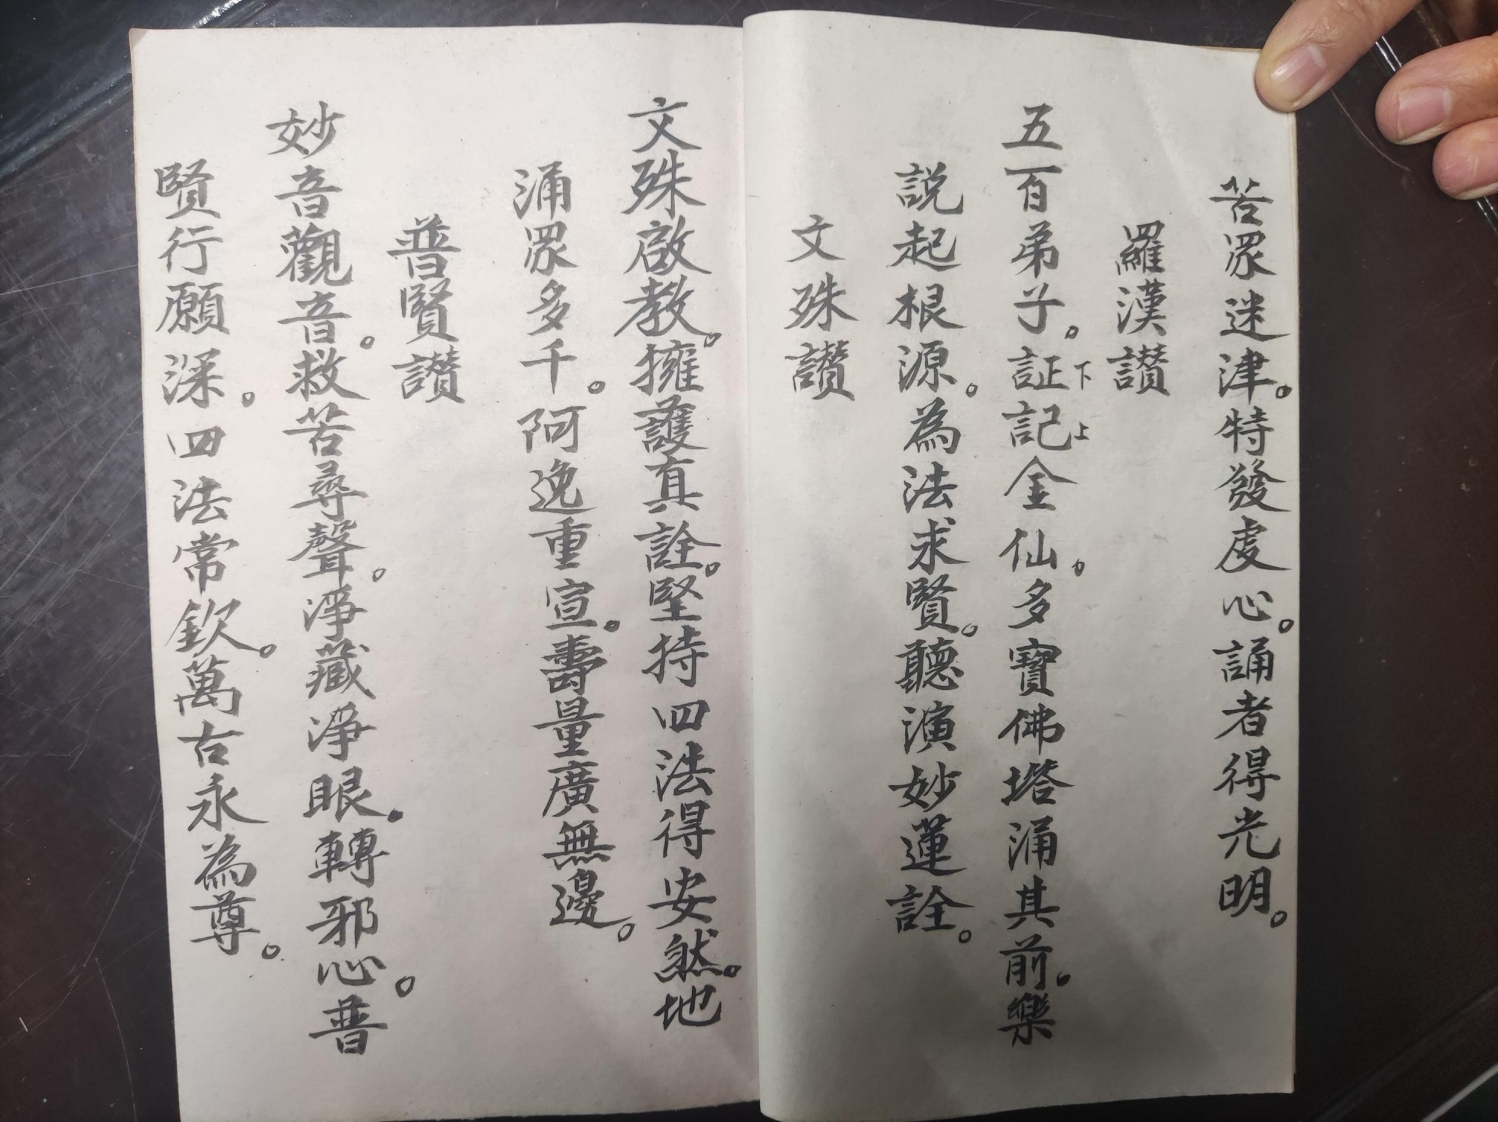 苦眾迷津。特發虔心。誦者得光明。
羅漢讚
五百弟子。証下記上金仙。多寶佛塔涌其前。樂
説起根源。為法求賢。聽演妙蓮詮。
文殊讚
文殊啟教。擁護真詮。堅持四法得安然。地
涌眾多千。阿逸重宣。壽量廣無邊。
普賢讚
妙音觀音。救苦尋聲。淨藏淨眼。轉邪心。普
賢行願深。四法常欽。萬古永為尊。